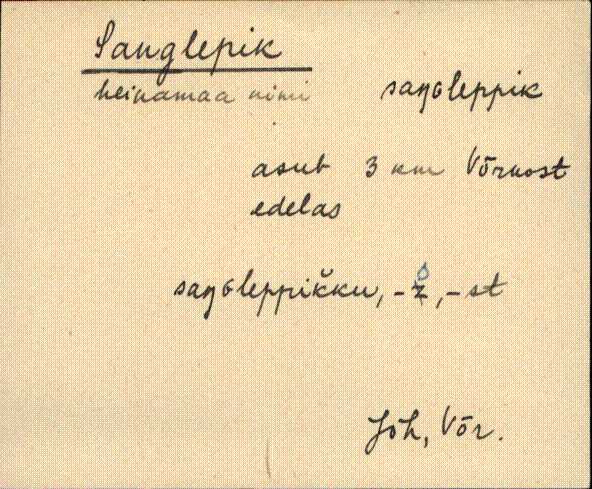 Sanglepik
heinamaa nimi saŋɢleppik
asub 3 km Võrnost
edelas
saŋɢleppik̆ku, -z̥, -st
Jõh, Võr.